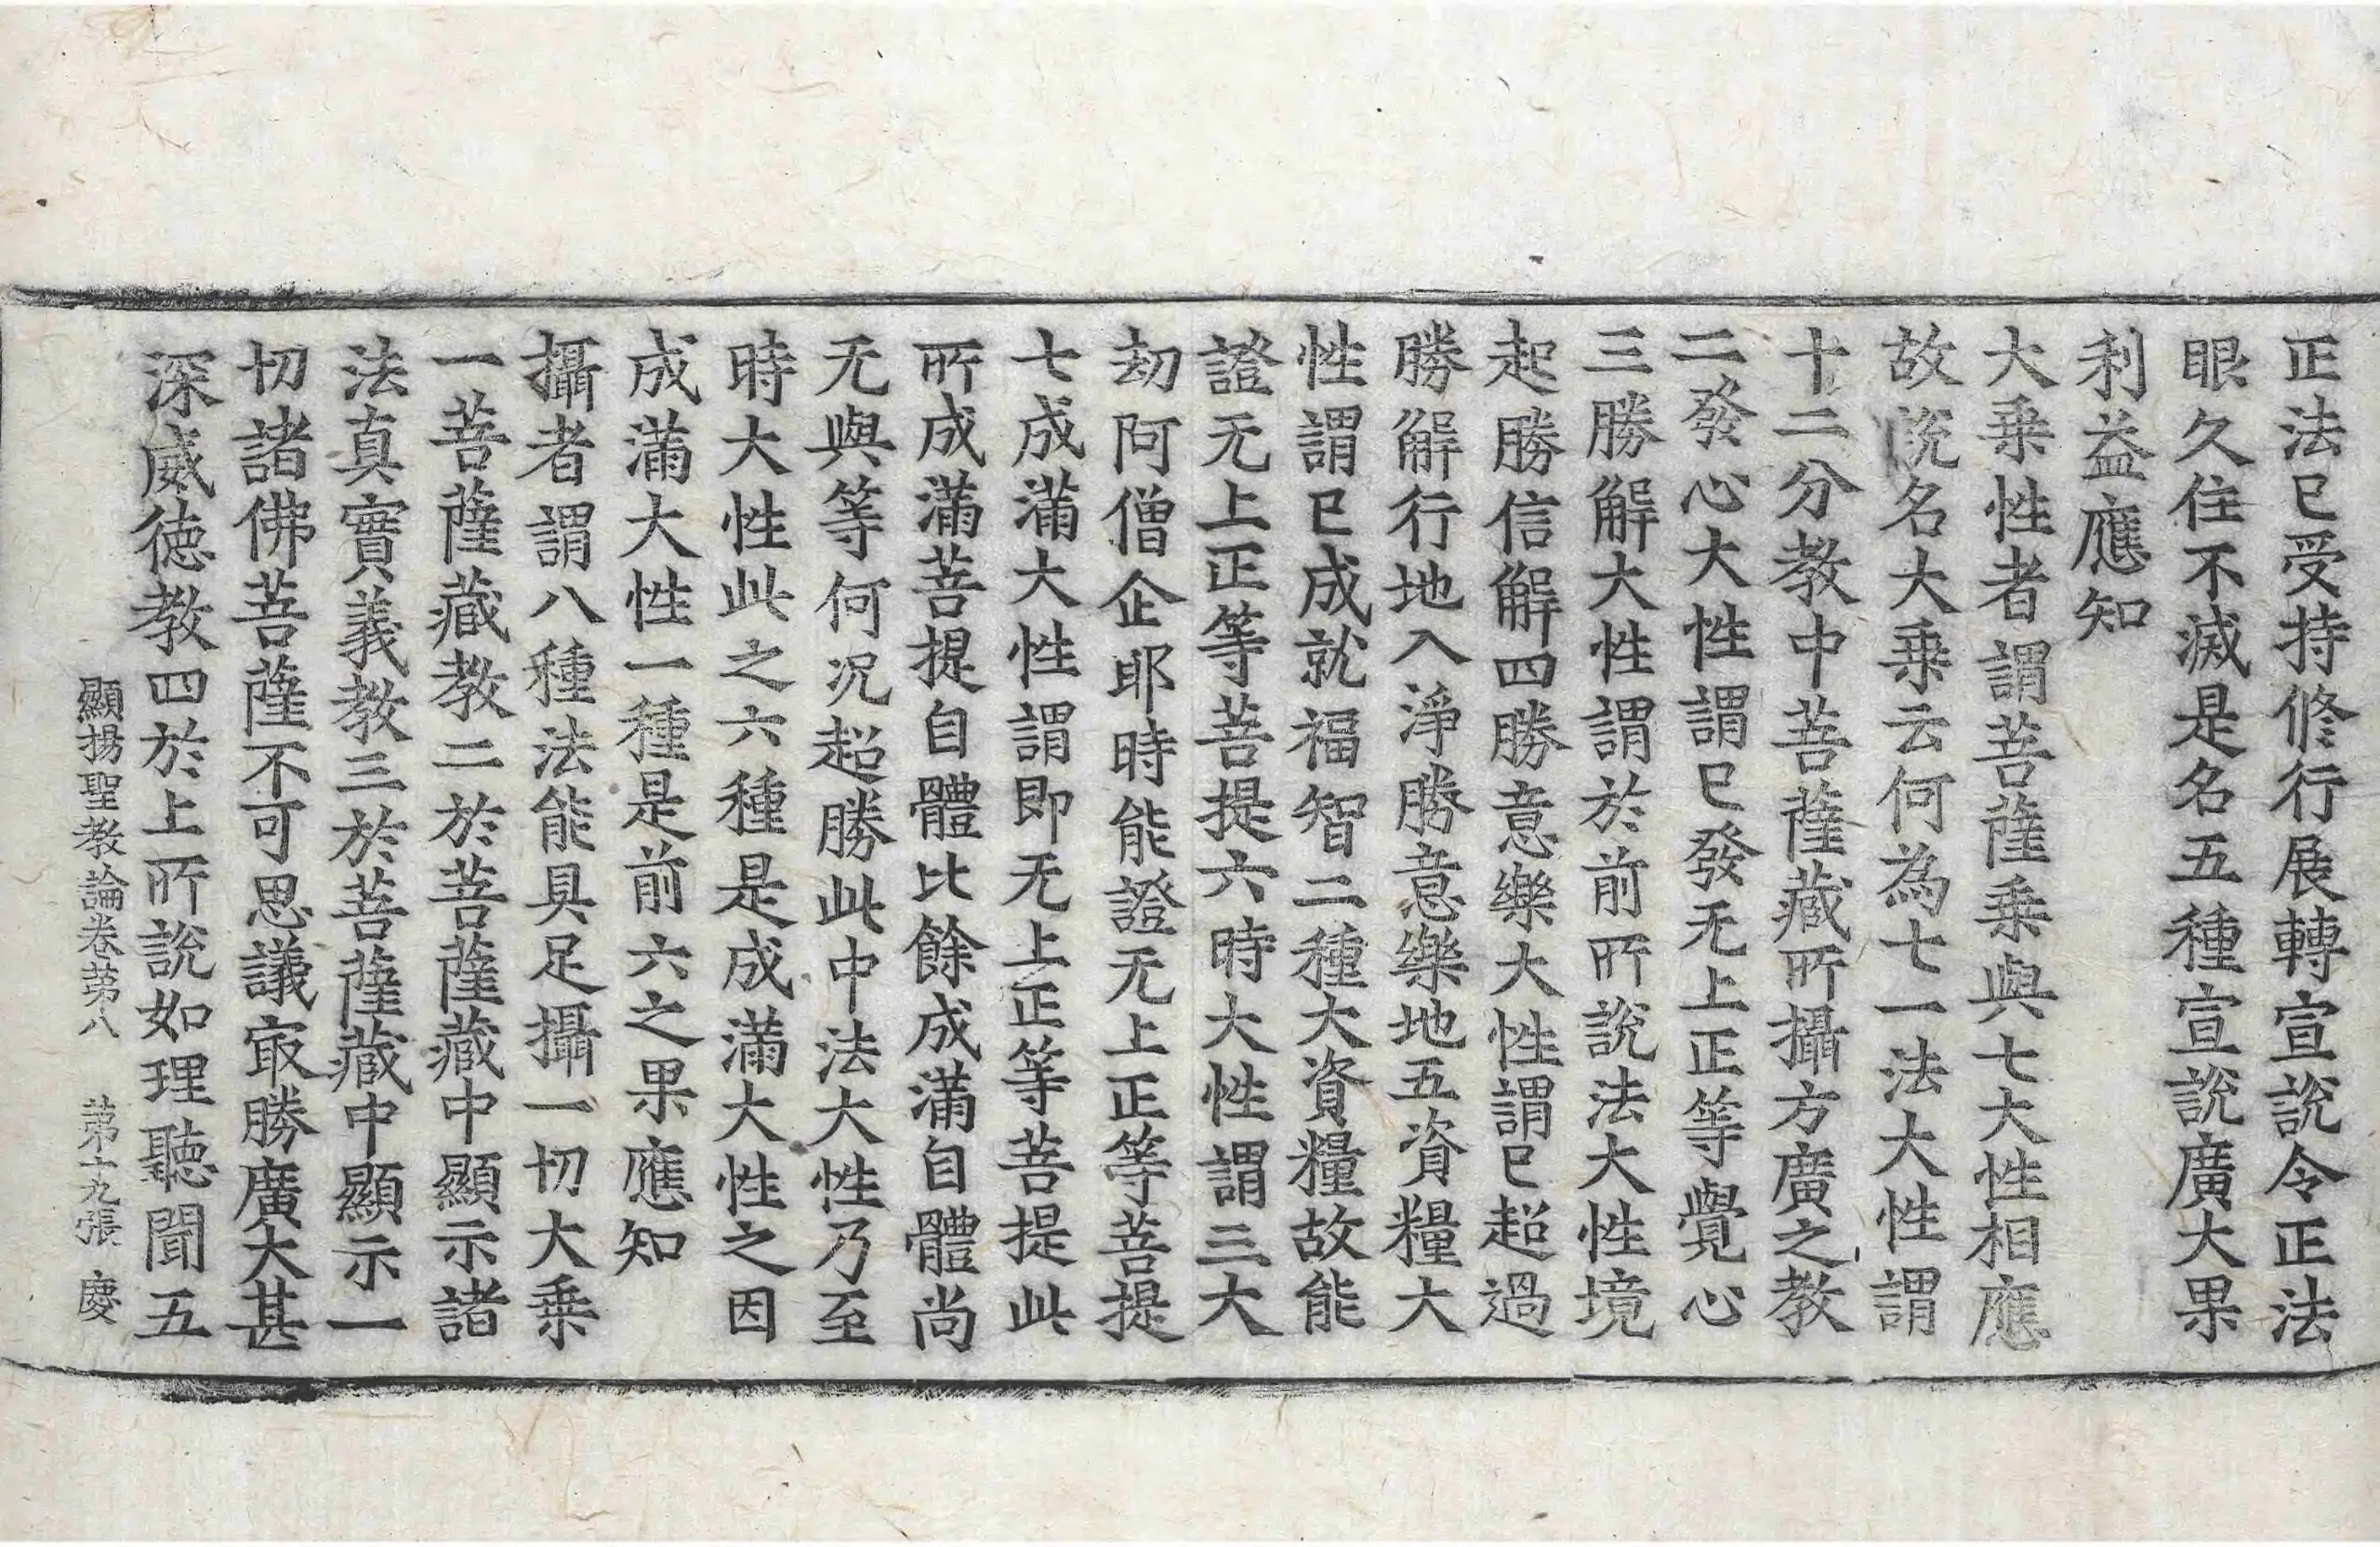 正法已受持修行展轉宣說令正法
眼久住不滅是名五種宣說廣大果
利益應知
大乗性者謂菩薩乗與七大性相應
故說名大乗云何為七一法大性謂
十二分教中菩薩藏所攝方廣之教
二發心大性謂已發无上正等覺心
三勝解大性謂於前所說法大性境
起勝信解四勝意樂大性謂已超過
勝解行地入淨勝意樂地五資糧大
性謂已成就福智二種大資糧故能
證无上正等菩提六時大性謂三大
劫阿僧企耶時能證无上正等菩提
七成滿大性謂即无上正等菩提此
所成滿菩提自體比餘成滿自體尚
无與等何況超勝此中法大性乃至
時大性此之六種是成滿大性之因
成滿大性一種是前六之果應知
攝者謂八種法能具足攝一切大乗
一菩薩藏教二於菩薩藏中顯示諸
法真實義教三於菩薩藏中顯示一
切諸佛菩薩不可思議㝡勝廣大甚
深威德教四於上所說如理聽聞五
顯揚聖教論卷苐八 苐十九張 慶